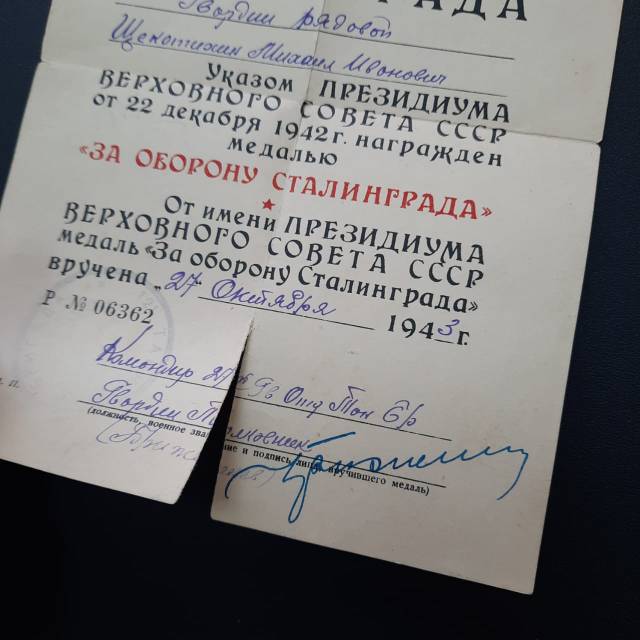 РАДА
Гвардии рядовой
Щекотихин Михаил Иванович
Указом ПРЕЗИДИУМА
ВЕРХОВНОГО СОВЕТА СССР
от 22 декабря 1942 г. награжден
медалью
«ЗА ОБОРОНУ СТАЛИНГРАДА»
От имени ПРЕЗИДИУМА
ВЕРХОВНОГО СОВЕТА СССР
медаль «За оборону Сталинграда»
вручена „27. Октября 1943 г.
Р № 06362
Командир 27 Гв Отд Тан бр
Гвардии
(должность, военное зва ние и подпись лица, вручившего медаль)